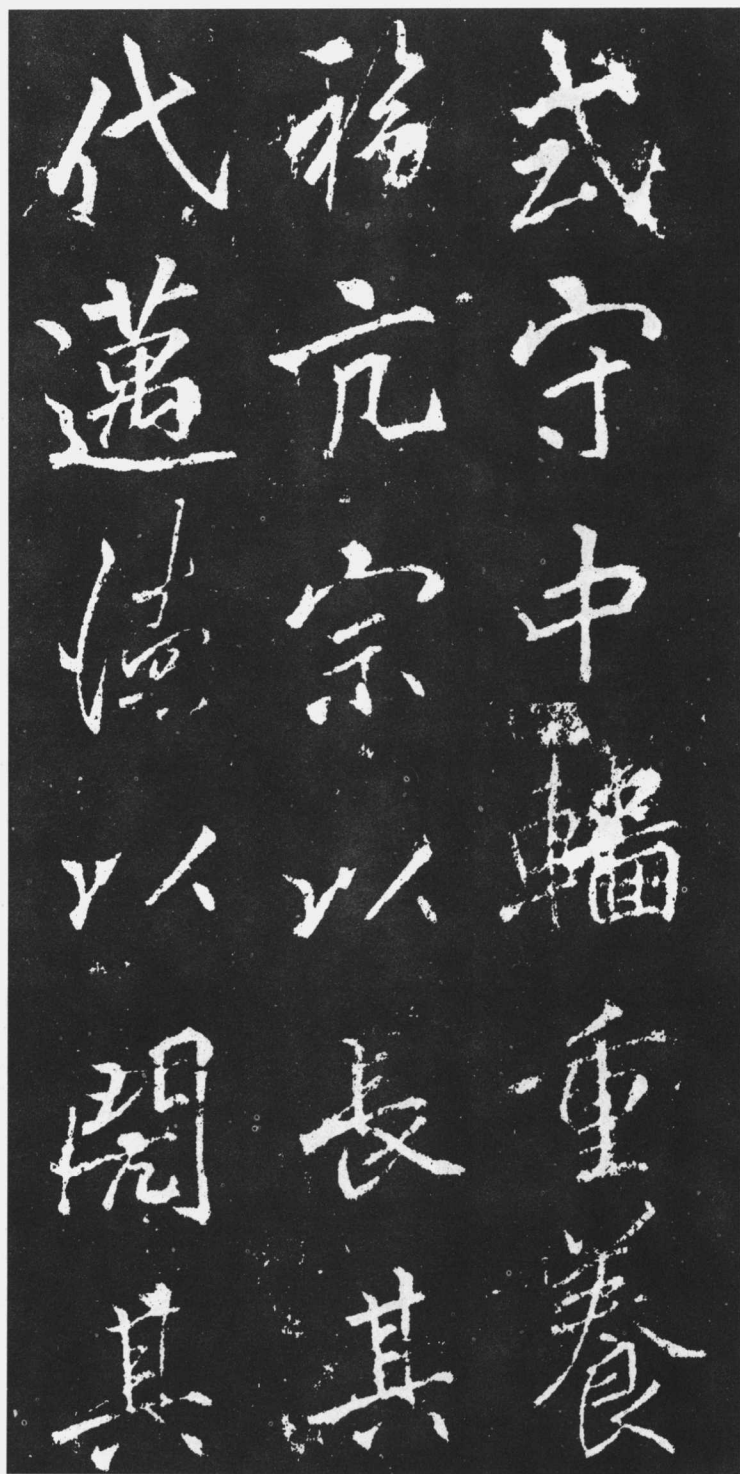 或守中輜重養
福亢宗以長其
代邁德以閌其